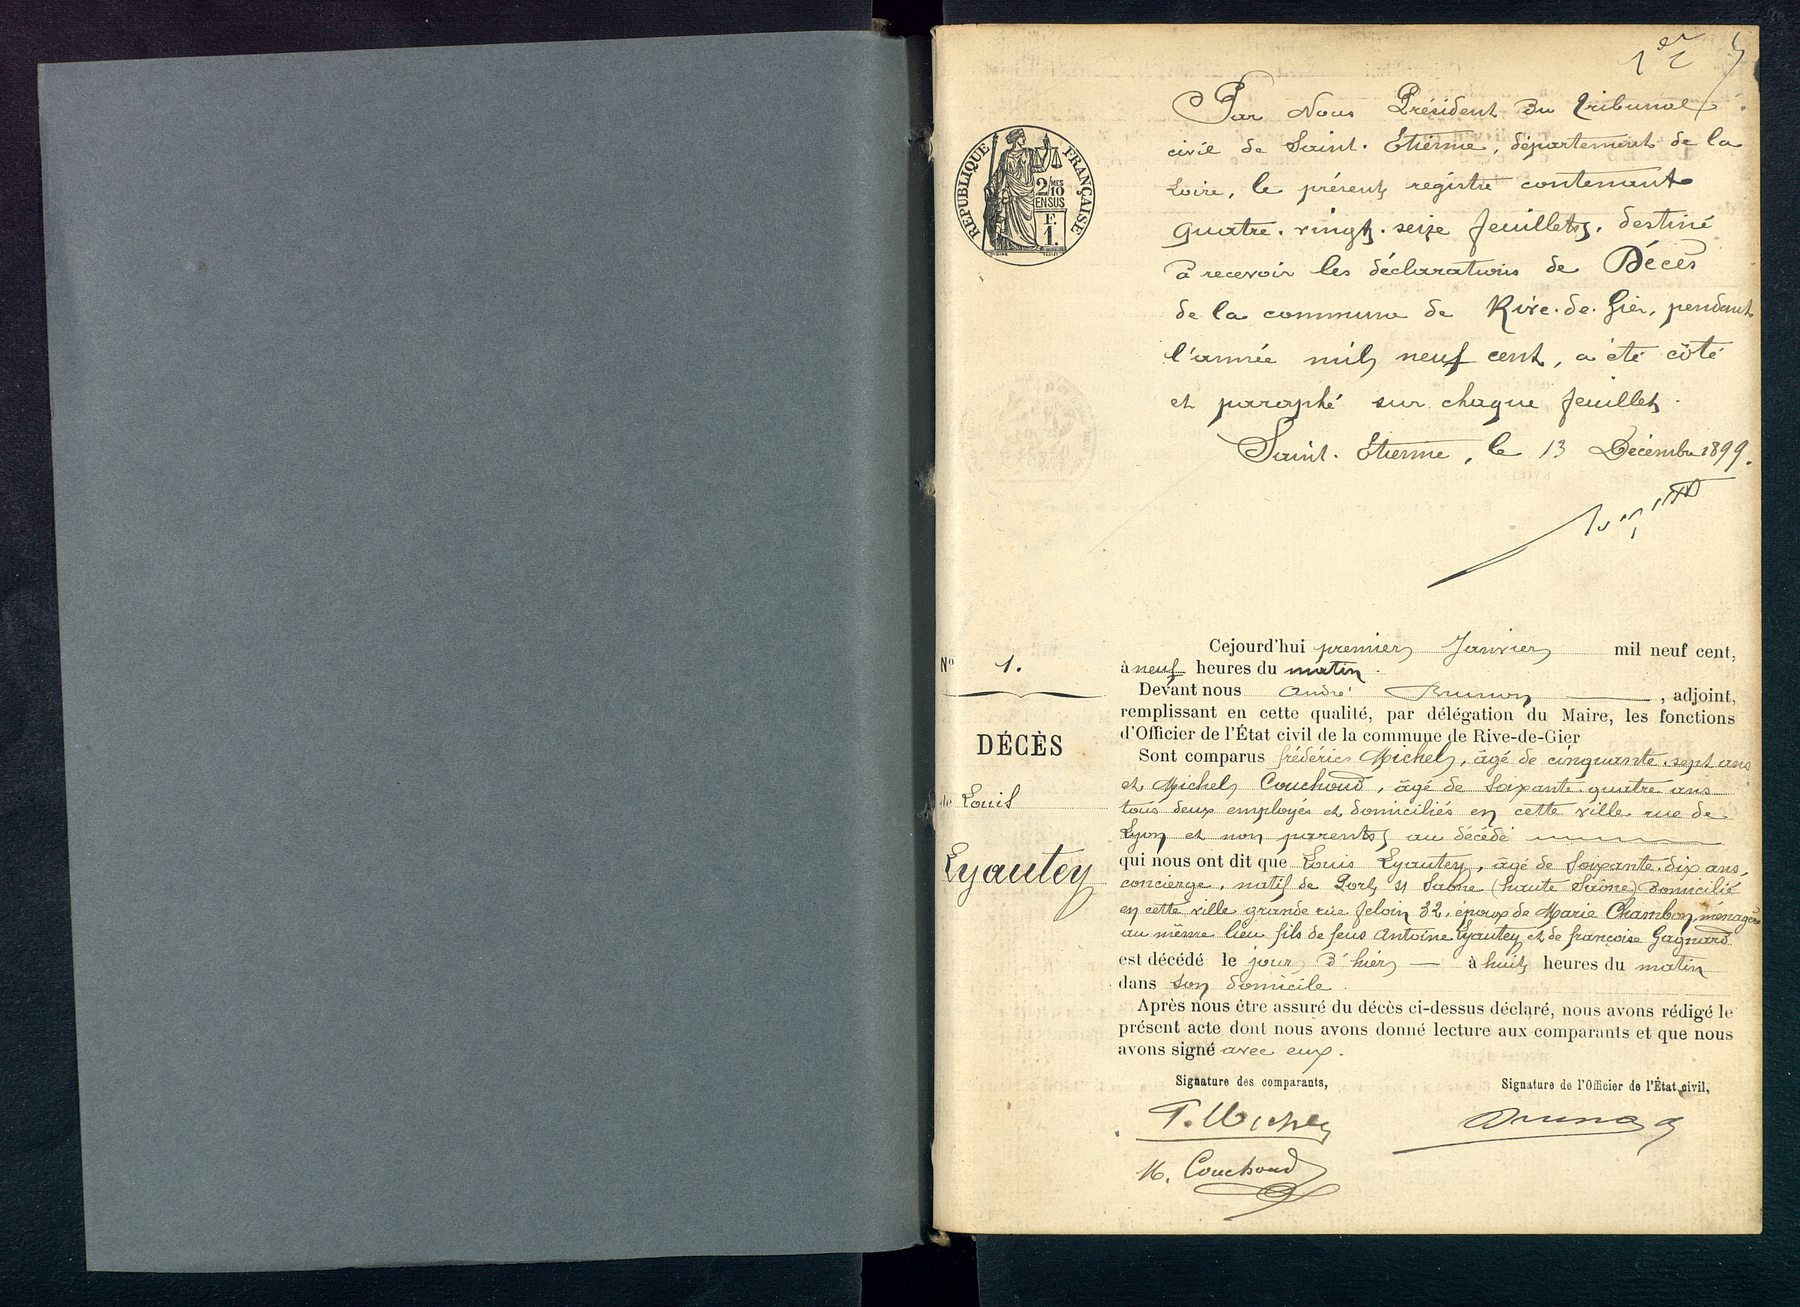 1er
Par Nous Président du Tribunal
civil de Saint-Etienne, département de la
Loire, le présent registre contenant
quatre-vingt-seize feuillets, destiné
à recevoir les déclarations de Décès
de la commune de Rive-de-Gier, pendant
l'année mil neuf cent, a été côté
et paraphé sur chaque feuillet.
Saint-Etienne, le 13 Décembre 1899.
REPUBLIQUE FRANÇAISE
2/10MES
EN SUS
F
1.
Cejourd'hui premier Janvier mil neuf cent,
à neuf heures du matin.
Devant nous André Brunon, adjoint,
remplissant en cette qualité, par délégation du Maire, les fonctions
d'Officier de l'État civil de la commune de Rive-de-Gier
Sont comparus frédéric Michel, âgé de cinquante-sept ans
et Michel Couchoud, âgé de soixante-quatre ans
tous deux employés et domiciliés en cette ville rue de
Lyon et non parents au décédé
qui nous ont dit que Louis Lyautey, âgé de Soixante-dix ans,
concierge, natif de Port s/ Saône (haute Saône) Domicilié
en cette ville grande rue feloin 32, époux de Marie Chambon, ménagère
au même lieu fils de feus Antoine Lyautey et de françoise Gagnard
est décédé le jour d'hier — à huit heures du matin
dans son domicile.
Après nous être assuré du décès ci-dessus déclaré, nous avons rédigé le
présent acte dont nous avons donné lecture aux comparants et que nous
avons signé avec eux.
Signature des comparants,
Signature de l'Officier de l'État civil,
F. Michel
Brunon
M. Couchoud
N° 1.
DÉCÈS
de Louis
Lyautey